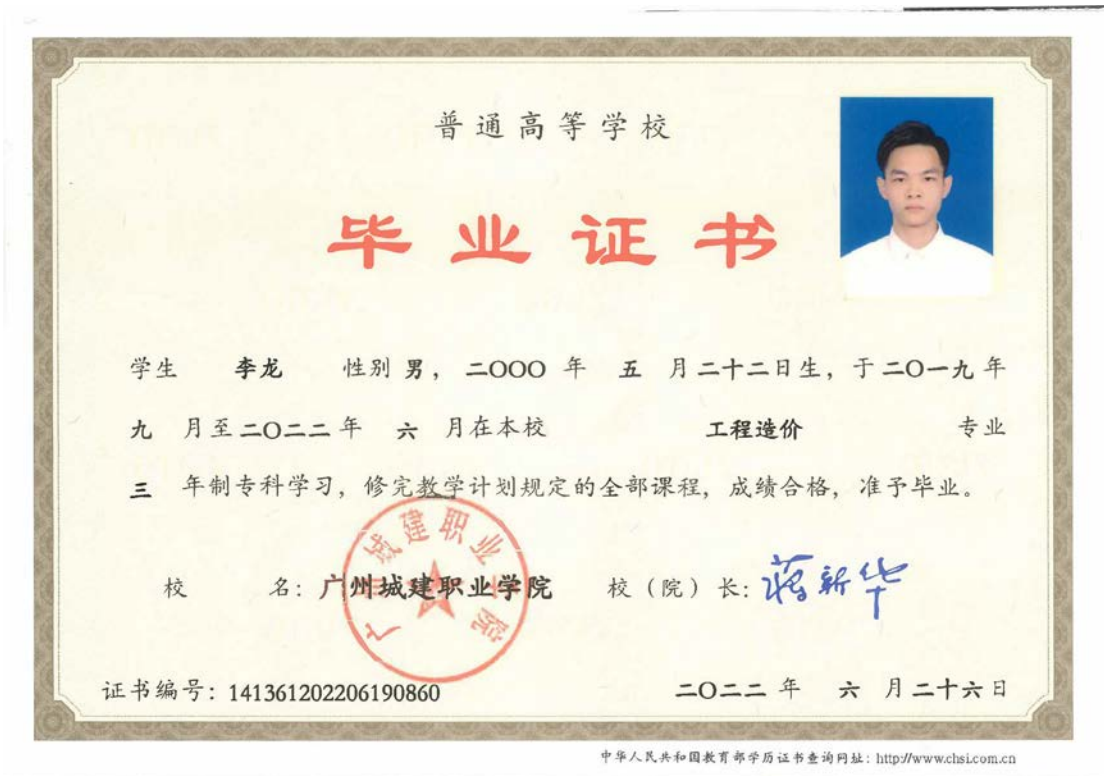 普通高等学校
毕业证书
学生 李龙 性别 男，二〇〇〇年 五 月二十二日生，于二〇一九年
九 月至二〇二二年 六 月在本校 工程造价 专业
三 年制专科学习，修完教学计划规定的全部课程，成绩合格，准予毕业。
广州城建职业学院
校 名：广州城建职业学院 校（院）长：蒋新华
证书编号：141361202206190860 二〇二二年 六 月二十六日
中华人民共和国教育部学历证书查询网址：http://www.chsi.com.cn